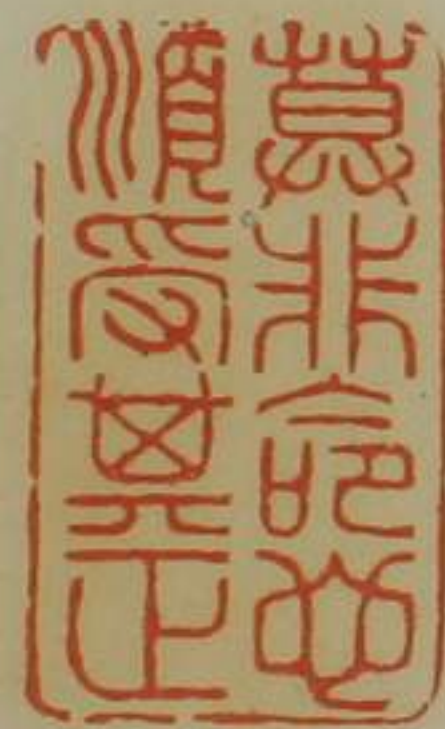 莫非命也
順受其正